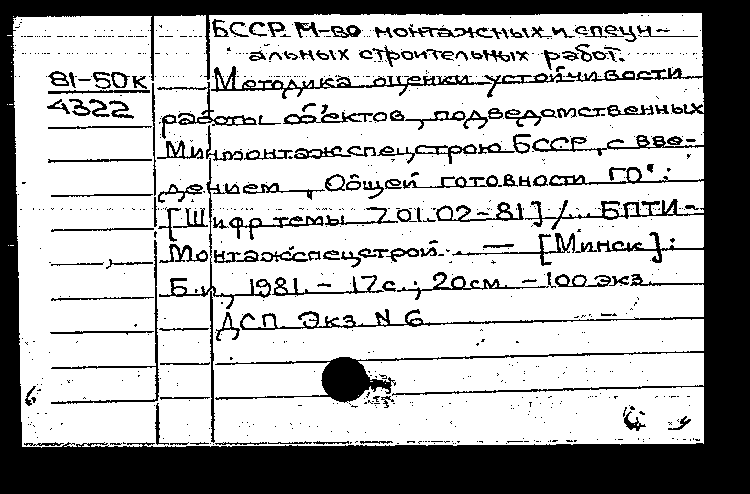 БССР. М-во монтажных и специ-
альных строительных работ.
81-50к
4322
Методика оценки устойчивости
работы объектов, подведомственных
Минмонтажспецстрою БССР, с вве-
дением „Общей готовности ГО":
[Шифр темы 701.02-81] /... БПТИ-
Монтажспецстрой. — [Минск]:
Б.и., 1981. - 17с.; 20см. - 100 экз.
ДСП. Экз. N 6
6